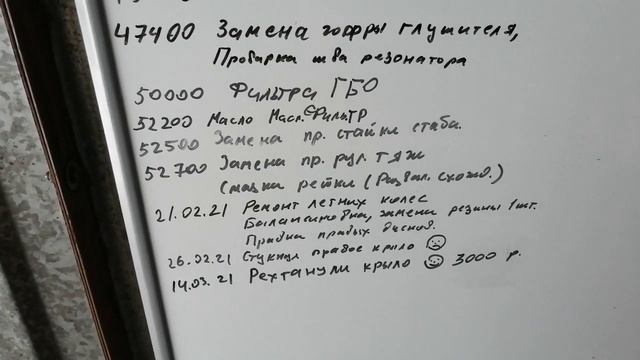 47400 Замена гофры глушителя,
Проварка шва резонатора
50000 Фильтра ГБО
52200 Масло Масл. Фильтр
52500 Замена пр. стайки стаба.
52700 Замена пр. рул. тяж
Смазка рейки (Развал. схожд.)
21.02.21 Ремонт летних колес
Балансировка, замена резины 1 шт.
Правка правых дисков.
26.02.21 Стукнул правое крыло
14.03.21 Рехтанули крыло 3000 р.